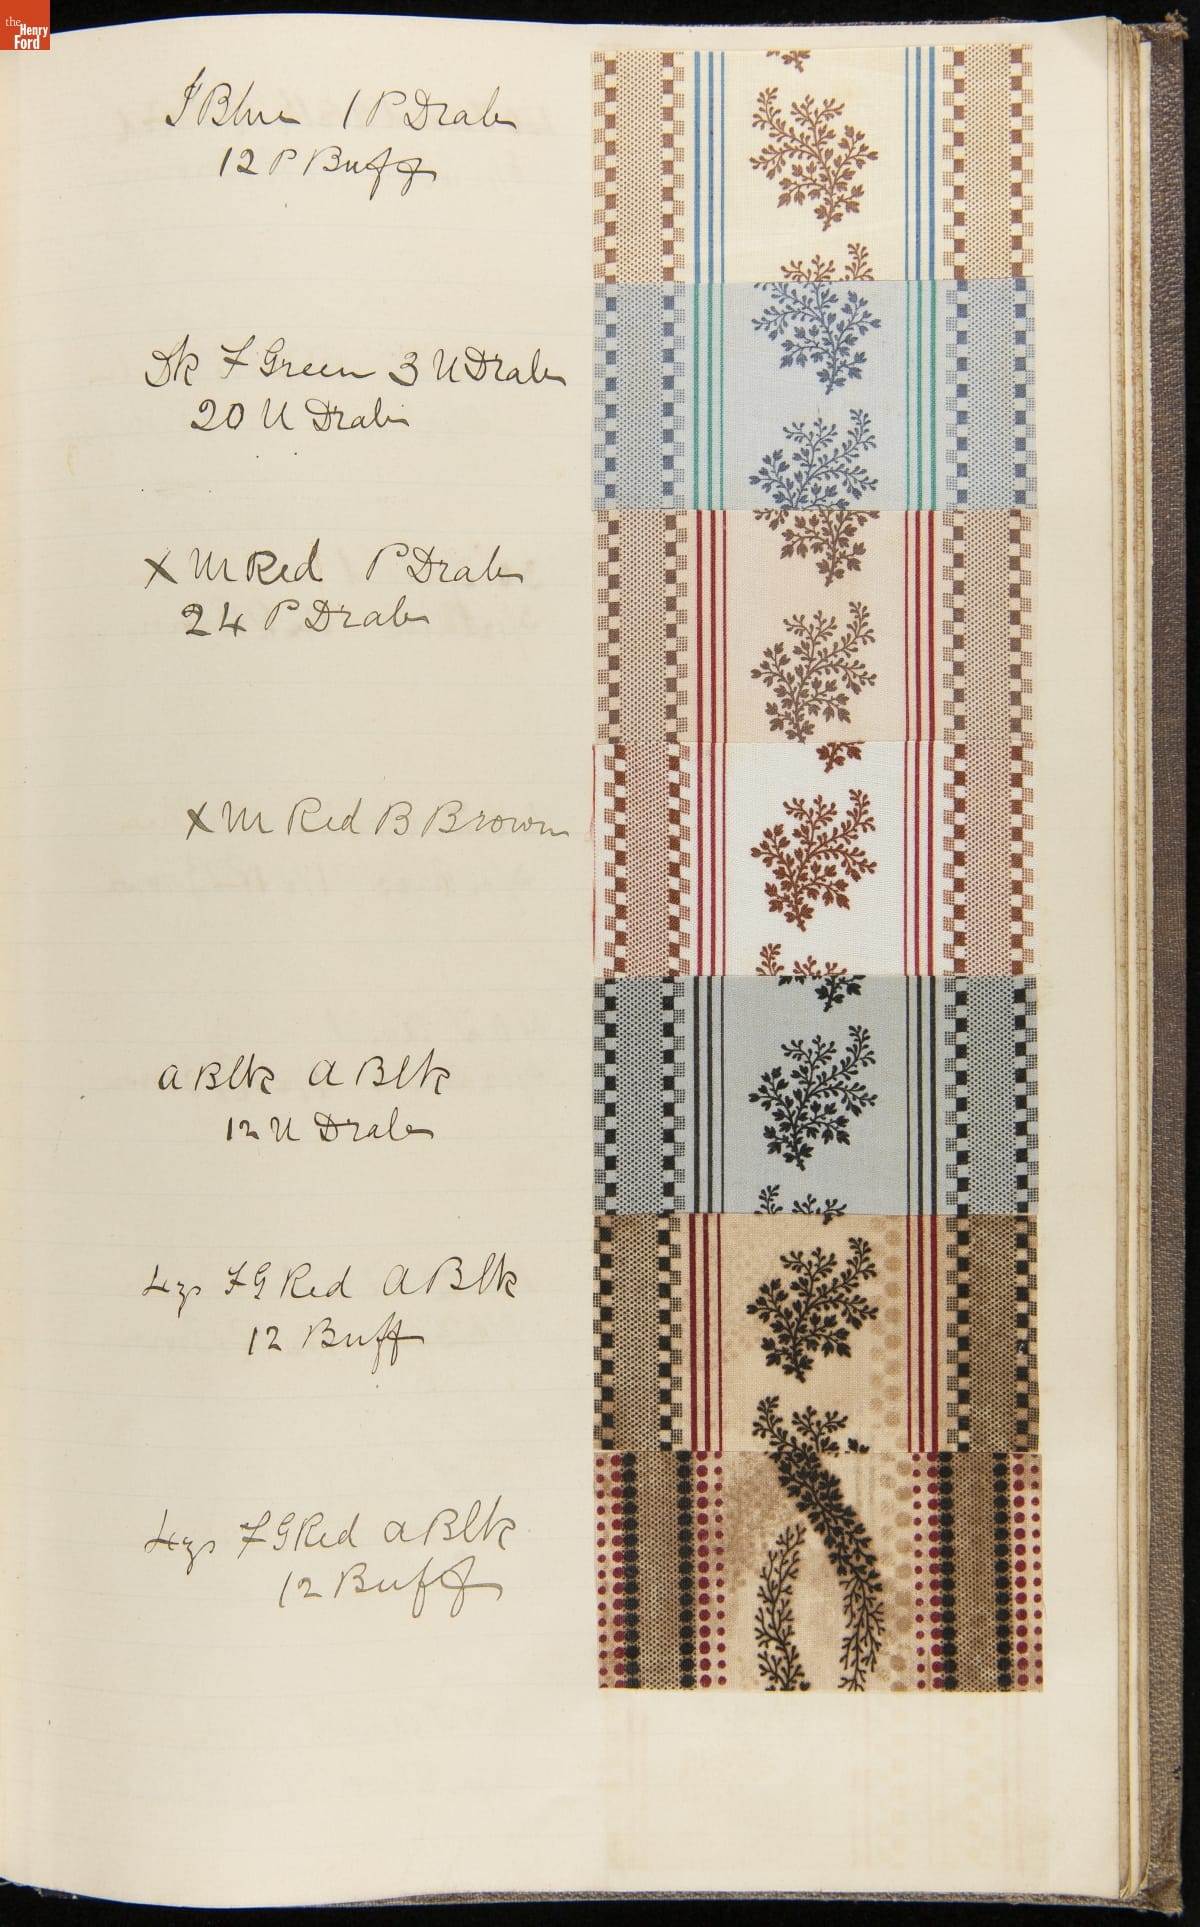 the
Henry
Ford
J Blue 1 P Drab
12 P Buff
Dk F Green 3 U Drab
20 U Drab
X M Red P Drab
24 P Drab
X M Red B Brown
A Blk A Blk
12 U Drab
F G Red A Blk
12 Buff
F G Red A Blk
12 Buff